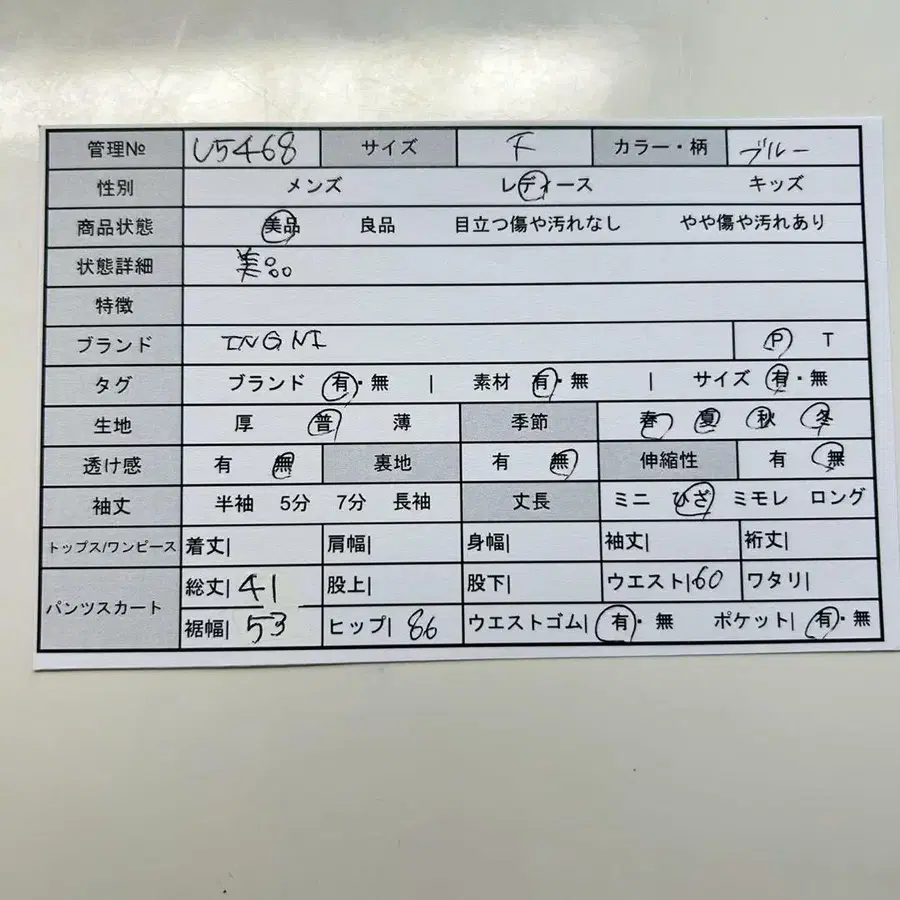 管理№ U5468 サイズ F カラー・柄 ブルー
性別 メンズ レディース キッズ
商品状態 美品 良品 目立つ傷や汚れなし やや傷や汚れあり
状態詳細 美品
特徴
ブランド INGNI P T
タグ ブランド 有・無 | 素材 有・無 | サイズ 有・無
生地 厚 普 薄 季節 春 夏 秋 冬
透け感 有 無 裏地 有 無 伸縮性 有 無
袖丈 半袖 5分 7分 長袖 丈長 ミニ ひざ ミモレ ロング
トップス/ワンピース 着丈| 肩幅| 身幅| 袖丈| 裄丈|
パンツスカート 総丈| 41 股上| 股下| ウエスト|60 ワタリ|
裾幅| 53 ヒップ| 86 ウエストゴム| 有・無 ポケット| 有・無